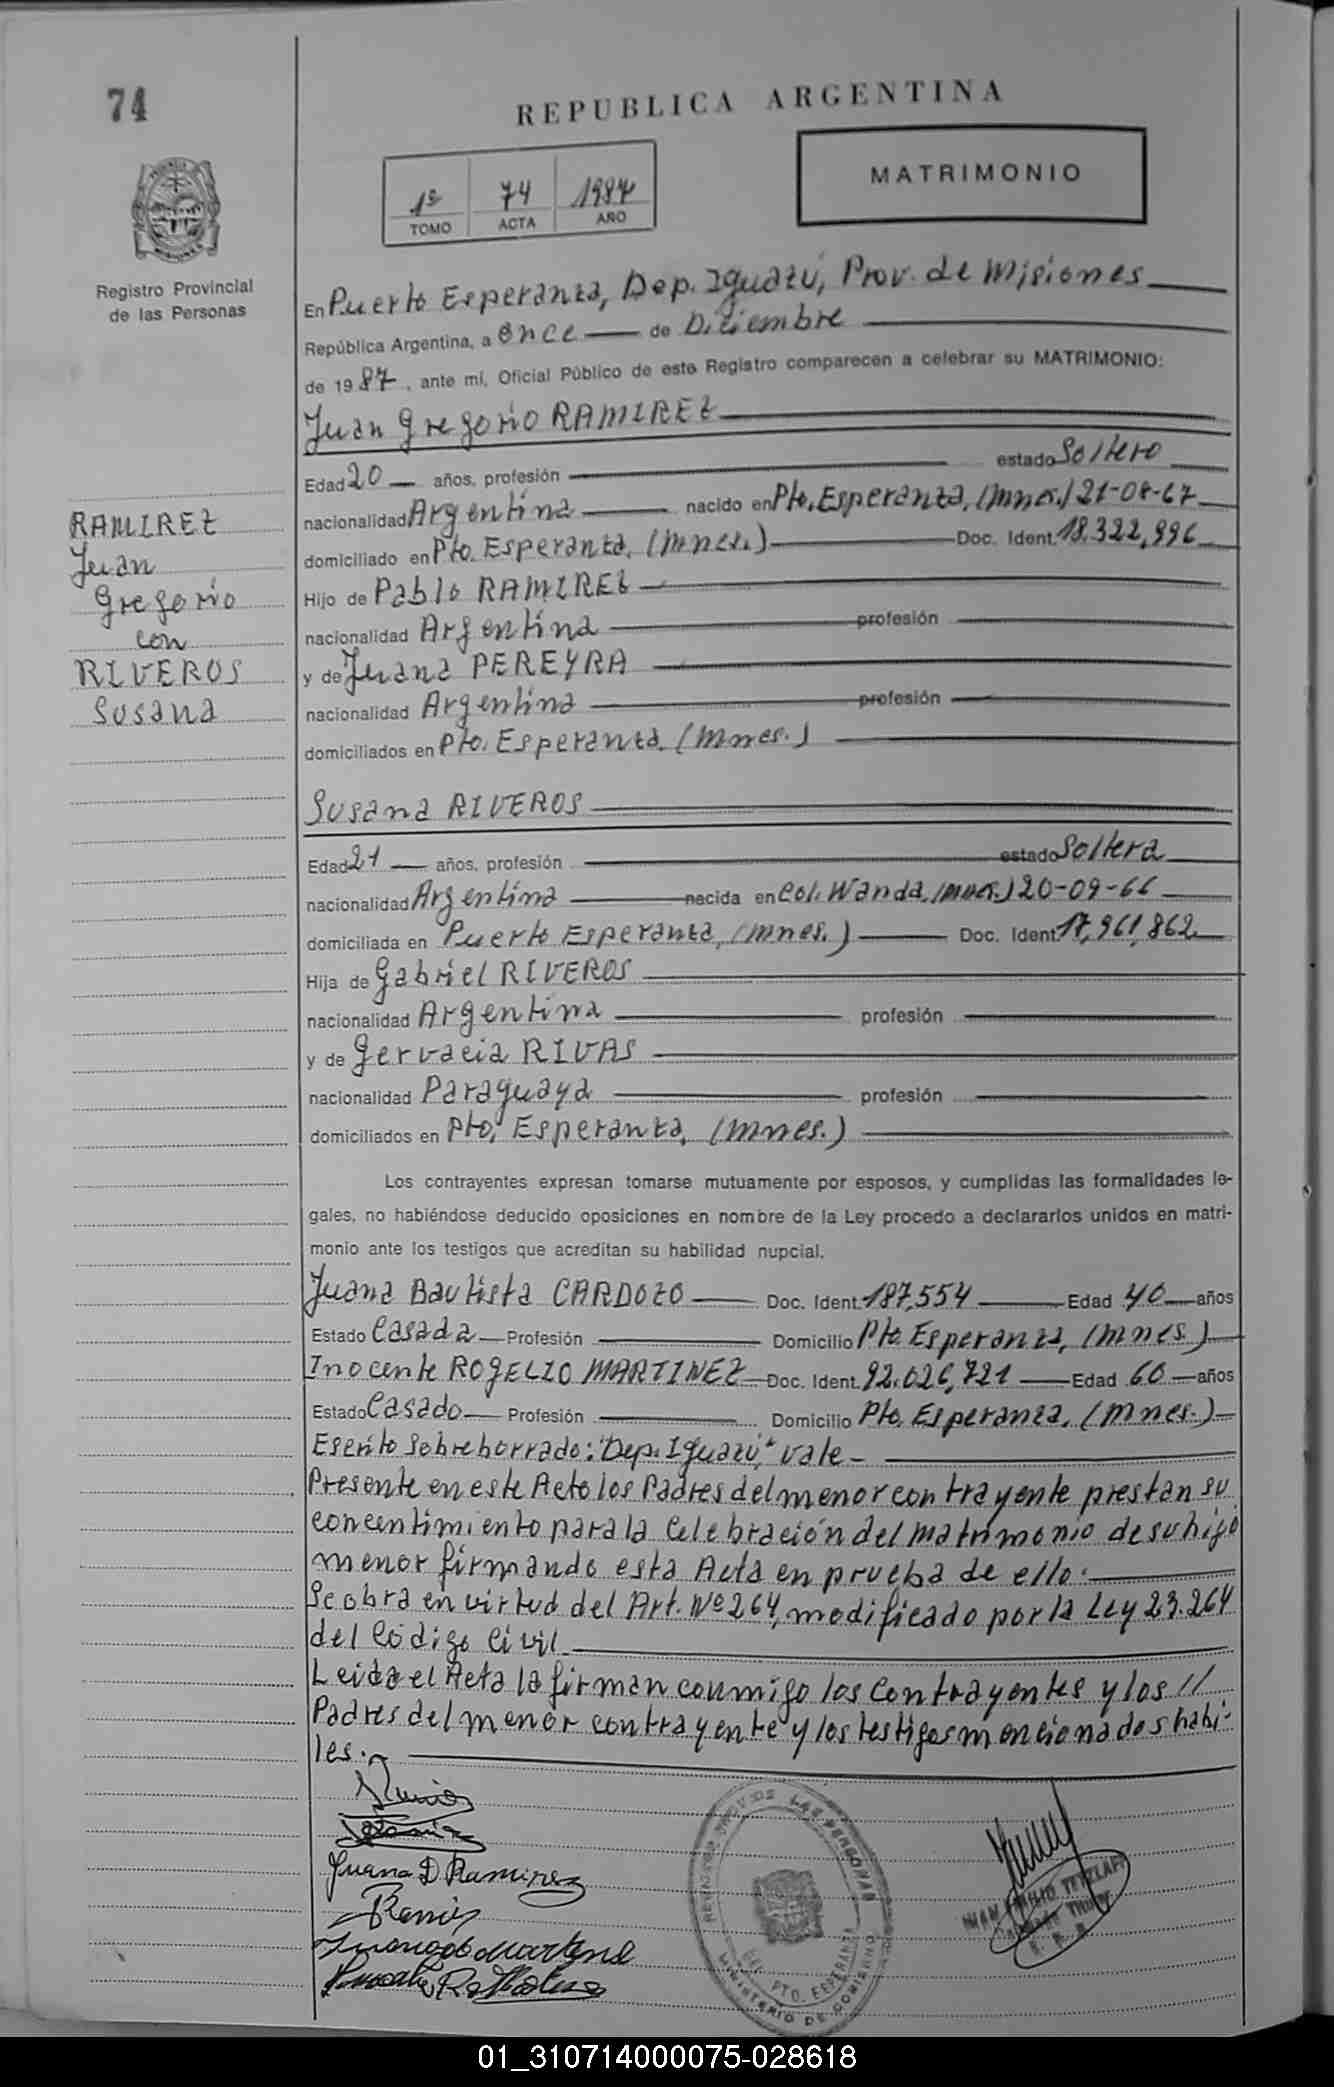 74
REPUBLICA ARGENTINA
MATRIMONIO
1º 74 1987
TOMO ACTA AÑO
Registro Provincial
de las Personas
En Puerto Esperanza, Dep. Iguazú, Prov. de Misiones
República Argentina, a once de Diciembre
de 1987, ante mí, Oficial Público de este Registro comparecen a celebrar su MATRIMONIO:
Juan Gregorio RAMIREZ
Edad 20 años, profesión estado Soltero
nacionalidad Argentina nacido en Pto. Esperanza, (Mnes.) 21-08-67
domiciliado en Pto. Esperanza, (Mnes.) Doc. Ident. 18.322,996
Hijo de Pablo RAMIREZ
nacionalidad Argentina profesión
y de Juana PEREYRA
nacionalidad Argentina profesión
domiciliados en Pto. Esperanza, (Mnes.)
RAMIREZ
Juan
Gregorio
con
RIVEROS
Susana
Susana RIVEROS
Edad 21 años, profesión estado Soltera
nacionalidad Argentina nacida en Col. Wanda, (Mnes.) 20-09-66
domiciliada en Puerto Esperanza, (Mnes.) Doc. Ident. 17,961,862
Hija de Gabriel RIVEROS
nacionalidad Argentina profesión
y de Gervacia RIVAS
nacionalidad Paraguaya profesión
domiciliados en Pto, Esperanza, (Mnes.)
Los contrayentes expresan tomarse mutuamente por esposos, y cumplidas las formalidades le-
gales, no habiéndose deducido oposiciones en nombre de la Ley procedo a declararlos unidos en matri-
monio ante los testigos que acreditan su habilidad nupcial.
Juana Bautista CARDOZO Doc. Ident. 187,554 Edad 40 años
Estado Casada Profesión Domicilio Pto. Esperanza, (Mnes.)
Inocente ROGELIO MARTINEZ Doc. Ident. 92.026,721 Edad 60 años
Estado Casado Profesión Domicilio Pto. Esperanza, (Mnes.)
Escrito Sobreborrado: "Dep. Iguazú," Vale
Presente en este Acto los Padres del menor contrayente prestan su
concentimiento para la Celebración del matrimonio de su hijo
menor firmando esta Acta en prueba de ello.
Se obra en virtud del Art. Nº 264, modificado por la Ley 23.264
del Código Civil
Leida el Acta la firman conmigo los Contrayentes y los //
Padres del menor contrayente y los testigos mencionados habi-
les.
Juana D Ramirez
PTO. ESPERANZA
MINISTERIO DE GOBIERNO
01_310714000075-028618